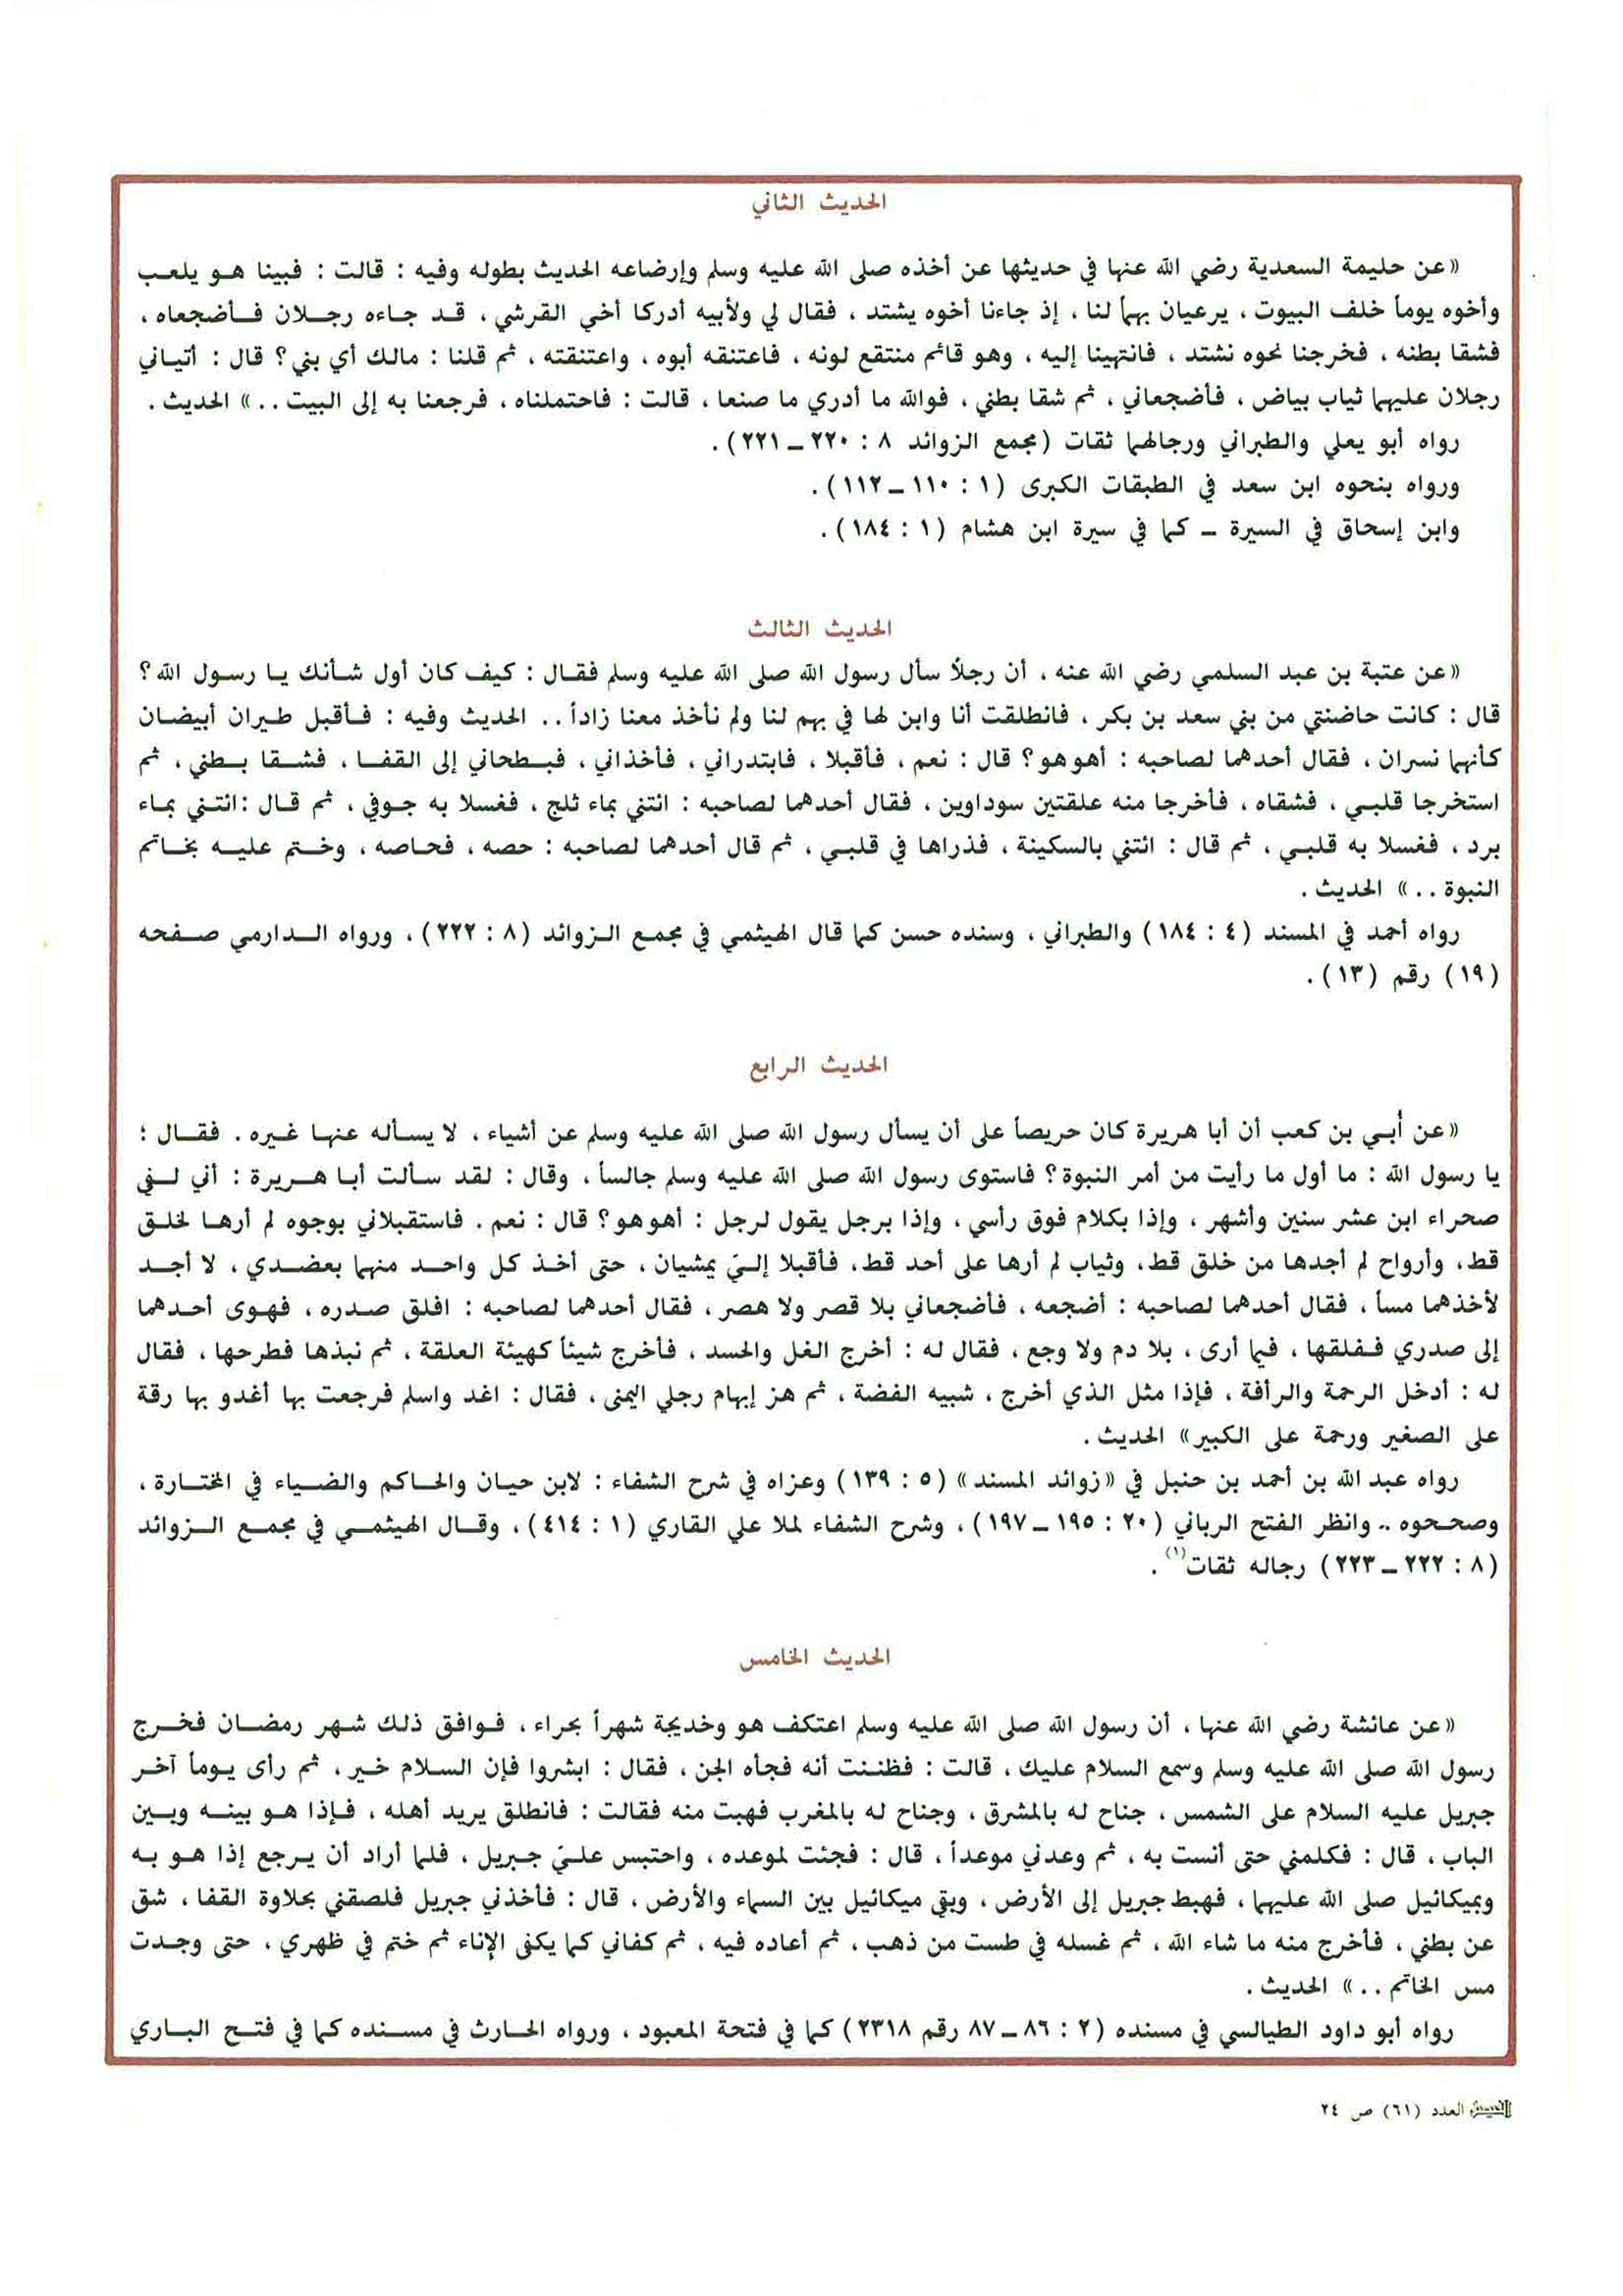 الحديث الثاني
«عن حليمة السعدية رضي الله عنها في حديثها عن أخذه صلى الله عليه وسلم وإرضاعه الحديث بطوله وفيه : قالت : فبينا هو يلعب
وأخوه يوماً خلف البيوت ، يرعيان بهماً لنا ، إذ جاءنا أخوه يشتد ، فقال لي ولأبيه أدركا أخي القرشي ، قد جاءه رجلان فأضجعاه ،
فشقا بطنه ، فخرجنا نحوه نشتد ، فانتهينا إليه ، وهو قائم منتقع لونه ، فاعتنقه أبوه ، واعتنقته ، ثم قلنا : مالك أي بني ؟ قال : أتياني
رجلان عليهما ثياب بياض ، فأضجعاني ، ثم شقا بطني ، فوالله ما أدري ما صنعا ، قالت : فاحتملناه ، فرجعنا به إلى البيت . .» الحديث .
رواه أبو يعلي والطبراني ورجالهما ثقات (مجمع الزوائد ٨ : ٢٢٠ – ٢٢١) .
ورواه بنحوه ابن سعد في الطبقات الكبرى (١ : ١١٠ – ١١٢) .
وابن إسحاق في السيرة – كما في سيرة ابن هشام (١ : ١٨٤) .
الحديث الثالث
«عن عتبة بن عبد السلمي رضي الله عنه ، أن رجلاً سأل رسول الله صلى الله عليه وسلم فقال : كيف كان أول شأنك يا رسول الله ؟
قال : كانت حاضنتي من بني سعد بن بكر ، فانطلقت أنا وابن لها في بهم لنا ولم نأخذ معنا زاداً . . الحديث وفيه : فأقبل طيران أبيضان
كأنهما نسران ، فقال أحدهما لصاحبه : أهوهو ؟ قال : نعم ، فأقبلا ، فابتدراني ، فأخذاني ، فبطحاني إلى القفا ، فشقا بطني ، ثم
استخرجا قلبي ، فشقاه ، فأخرجا منه علقتين سوداوين ، فقال أحدهما لصاحبه : ائتني بماء ثلج ، فغسلا به جوفي ، ثم قال : ائتني بماء
برد ، فغسلا به قلبي ، ثم قال : ائتني بالسكينة ، فذراها في قلبي ، ثم قال أحدهما لصاحبه : حصه ، فحاصه ، وختم عليه بخاتم
النبوة . .» الحديث .
رواه أحمد في المسند (٤ : ١٨٤) والطبراني ، وسنده حسن كما قال الهيثمي في مجمع الزوائد (٨ : ٢٢٢) ، ورواه الدارمي صفحه
(١٩) رقم (١٣) .
الحديث الرابع
«عن أُبي بن كعب أن أبا هريرة كان حريصاً على أن يسأل رسول الله صلى الله عليه وسلم عن أشياء ، لا يسأله عنها غيره . فقال :
يا رسول الله : ما أول ما رأيت من أمر النبوة ؟ فاستوى رسول الله صلى الله عليه وسلم جالساً ، وقال : لقد سألت أبا هريرة : أني لفي
صحراء ابن عشر سنين وأشهر ، وإذا بكلام فوق رأسي ، وإذا برجل يقول لرجل : أهوهو ؟ قال : نعم . فاستقبلاني بوجوه لم أرها لخلق
قط ، وأرواح لم أجدها من خلق قط ، وثياب لم أرها على أحد قط ، فأقبلا إليّ يمشيان ، حتى أخذ كل واحد منهما بعضدي ، لا أجد
لأخذهما مساً ، فقال أحدهما لصاحبه : أضجعه ، فأضجعاني بلا قصر ولا هصر ، فقال أحدهما لصاحبه : افلق صدره ، فهوى أحدهما
إلى صدري ففلقها ، فيما أرى ، بلا دم ولا وجع ، فقال له : أخرج الغل والحسد ، فأخرج شيئاً كهيئة العلقة ، ثم نبذها فطرحها ، فقال
له : أدخل الرحمة والرأفة ، فإذا مثل الذي أخرج ، شبيه الفضة ، ثم هز إبهام رجلي اليمنى ، فقال : اغد واسلم فرجعت بها أغدو بها رقة
على الصغير ورحمة على الكبير» الحديث .
رواه عبد الله بن أحمد بن حنبل في «زوائد المسند» (٥ : ١٣٩) وعزاه في شرح الشفاء : لابن حيان والحاكم والضياء في المختارة ،
وصححوه .. وانظر الفتح الرباني (٢٠ : ١٩٥ – ١٩٧) ، وشرح الشفاء لملا علي القاري (١ : ٤١٤) ، وقال الهيثمي في مجمع الزوائد
(٨ : ٢٢٢ – ٢٢٣) رجاله ثقات(١) .
الحديث الخامس
«عن عائشة رضي الله عنها ، أن رسول الله صلى الله عليه وسلم اعتكف هو وخديجة شهراً بحراء ، فوافق ذلك شهر رمضان فخرج
رسول الله صلى الله عليه وسلم وسمع السلام عليك ، قالت : فظننت أنه فجأه الجن ، فقال : ابشروا فإن السلام خير ، ثم رأى يوماً آخر
جبريل عليه السلام على الشمس ، جناح له بالمشرق ، وجناح له بالمغرب فهبت منه فقالت : فانطلق يريد أهله ، فإذا هو بينه وبين
الباب ، قال : فكلمني حتى أنست به ، ثم وعدني موعداً ، قال : فجئت لموعده ، واحتبس عليّ جبريل ، فلما أراد أن يرجع إذا هو به
وبميكائيل صلى الله عليهما ، فهبط جبريل إلى الأرض ، وبقي ميكائيل بين السماء والأرض ، قال : فأخذني جبريل فلصقني بحلاوة القفا ، شق
عن بطني ، فأخرج منه ما شاء الله ، ثم غسله في طست من ذهب ، ثم أعاده فيه ، ثم كفاني كما يكفى الإناء ثم ختم في ظهري ، حتى وجدت
مس الخاتم . .» الحديث .
رواه أبو داود الطيالسي في مسنده (٢ : ٨٦ – ٨٧ رقم ٢٣١٨) كما في فتحة المعبود ، ورواه الحارث في مسنده كما في فتح الباري
العدد (٦١) ص ٢٤